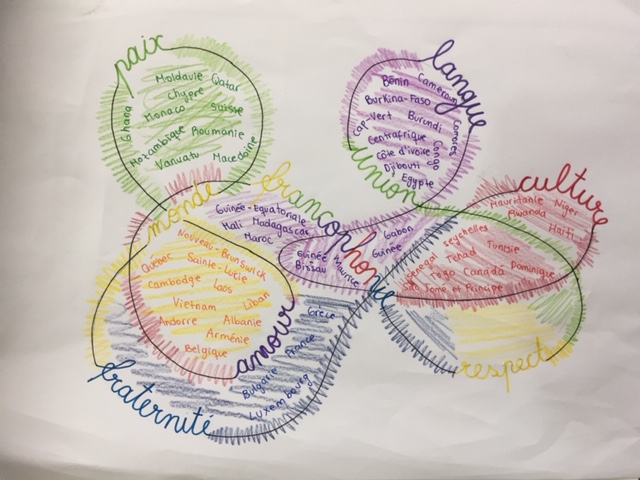 paix
Moldavie Qatar
Chypre
Ghana Monaco Suisse
Mozambique Roumanie
Vanuatu Macedoine
langue
Bénin Cameroun
Burkina-Faso
Cap-Vert Burundi Comores
Centrafrique Congo
Côte d'ivoire
Djibouti
Egypte
Union
culture
Mauritanie Niger
Rwanda
Haïti
Senegal Seychelles
Tchad Tunisie
Togo Canada Dominique
Sao Tomé et Principe
respect
monde
francophonie
Guinée-Equatoriale
Mali Madagascar
Maroc
Gabon
Guinée
Guinée
Bissau
Maurice
Nouveau-Brunswick
Québec Sainte-Lucie
Cambodge Laos
Vietnam Liban
Andorre Albanie
Arménie
Belgique
amour
Grèce
France
Bulgarie
Luxembourg
fraternité